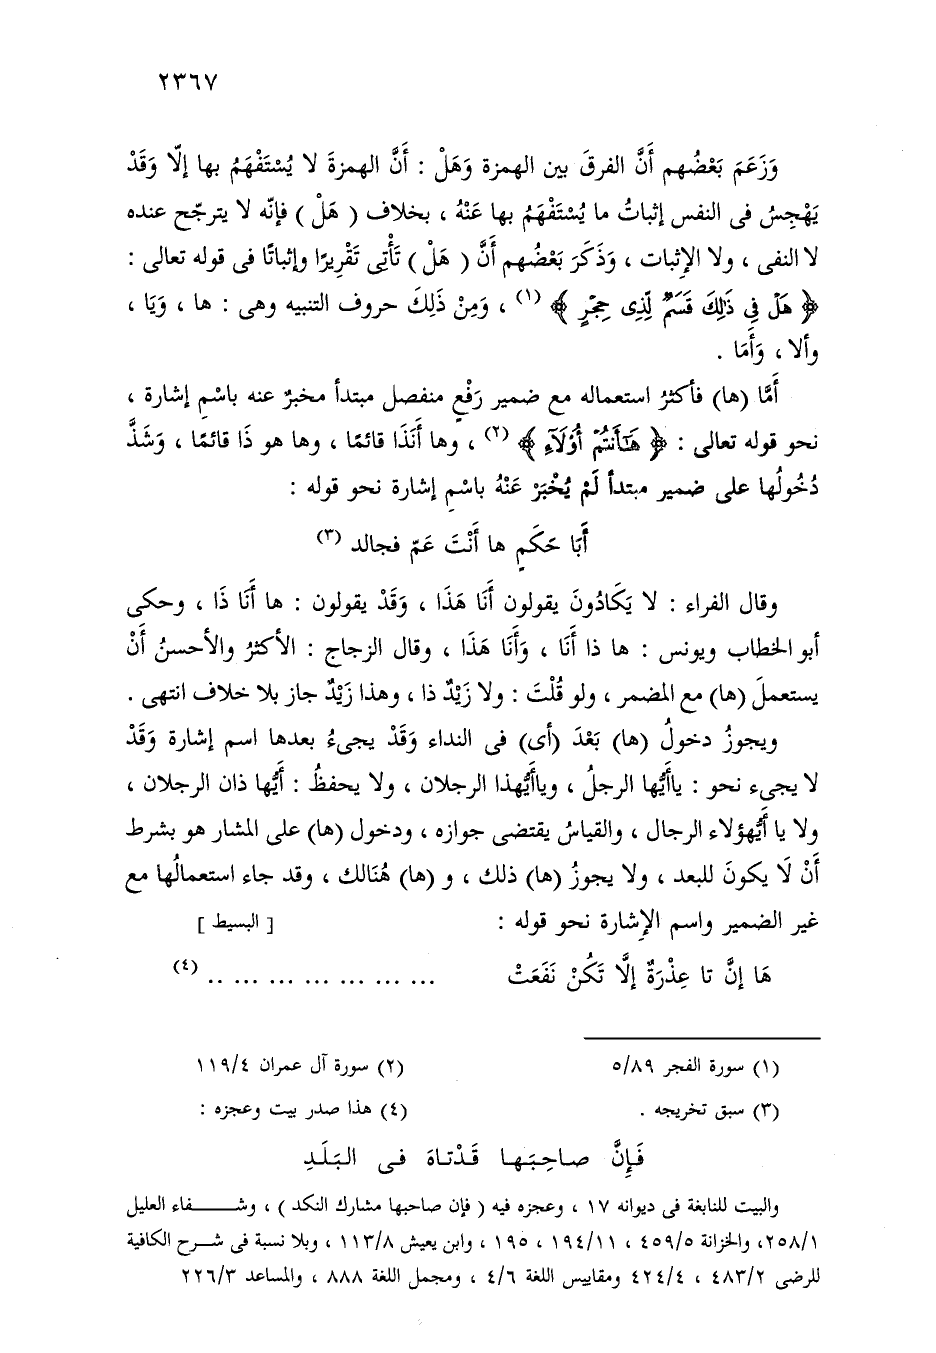 ٢٣٦٧
وَزَعَمَ بَعْضُهم أَنَّ الفرقَ بين الهمزة وَهَلْ : أَنَّ الهمزةَ لا يُسْتَفْهَمُ بها إلّا وَقَدْ
يَهْجِسُ فى النفس إثباتُ ما يُسْتَفْهَمُ بها عَنْهُ ، بخلاف ( هَلْ ) فإنّه لا يترجّح عنده
لا النفى ، ولا الإثبات ، وَذَكَرَ بَعْضُهم أَنَّ ( هَلْ ) تَأْتِى تَقْرِيرًا وإثباتًا فى قوله تعالى :
﴿ هَلْ فِى ذَٰلِكَ قَسَمٌ لِّذِى حِجْرٍ ﴾ (١) ، وَمِنْ ذَلِكَ حروف التنبيه وهى : ها ، وَيَا ،
وألا ، وَأَمَا .
أَمَّا (ها) فأكثرُ استعماله مع ضمير رَفْعٍ منفصل مبتدأ مخبرٌ عنه باسْمِ إشارة ،
نحو قوله تعالى : ﴿ هَٰٓأَنتُمْ أُوْلَآءِ ﴾ (٢) ، وها أَنَذَا قائمًا ، وها هو ذَا قائمًا ، وَشَذَّ
دُخُولُها على ضمير مبتدأ لَمْ يُخْبَرْ عَنْهُ باسْمِ إشارة نحو قوله :
أَبَا حَكَمٍ ها أَنْتَ عَمّ فجالد (٣)
وقال الفراء : لا يَكَادُونَ يقولون أَنَا هَذَا ، وَقَدْ يقولون : ها أَنَا ذَا ، وحكى
أبو الخطاب ويونس : ها ذا أَنَا ، وَأَنَا هَذَا ، وقال الزجاج : الأكثرُ والأحسنُ أَنْ
يستعملَ (ها) مع المضمر ، ولو قُلْتَ : ولا زَيْدٌ ذا ، وهذا زَيْدٌ جاز بلا خلاف انتهى .
ويجوزُ دخولُ (ها) بَعْدَ (أى) فى النداء وَقَدْ يجىءُ بعدها اسم إشارة وَقَدْ
لا يجىء نحو : ياأَيُّها الرجلُ ، وياأَيُّهذا الرجلان ، ولا يحفظُ : أَيُّها ذان الرجلان ،
ولا يا أَيُّهؤلاء الرجال ، والقياسُ يقتضى جوازه ، ودخول (ها) على المشار هو بشرط
أَنْ لَا يكونَ للبعد ، ولا يجوزُ (ها) ذلك ، و (ها) هُنَالك ، وقد جاء استعمالُها مع
غير الضمير واسم الإشارة نحو قوله : [ البسيط ]
هَا إنَّ تا عِذْرَةٌ إلَّا تَكُنْ نَفَعَتْ .. ... ... ... ... ... ... (٤)
(١) سورة الفجر ٥/٨٩ (٢) سورة آل عمران ١١٩/٤
(٣) سبق تخريجه . (٤) هذا صدر بيت وعجزه :
فَإنَّ صاحِبَها قَدْتاهَ فى البَلَدِ
والبيت للنابغة فى ديوانه ١٧ ، وعجزه فيه ( فإن صاحبها مشارك النكد ) ، وشفاء العليل
٢٥٨/١، والخزانة ٤٥٩/٥ ، ١٩٤/١١ ، ١٩٥ ، وابن يعيش ١١٣/٨ ، وبلا نسبة فى شرح الكافية
للرضى ٤٨٣/٢ ، ٤٢٤/٤ ومقاييس اللغة ٤/٦ ، ومجمل اللغة ٨٨٨ ، والمساعد ٢٢٦/٣